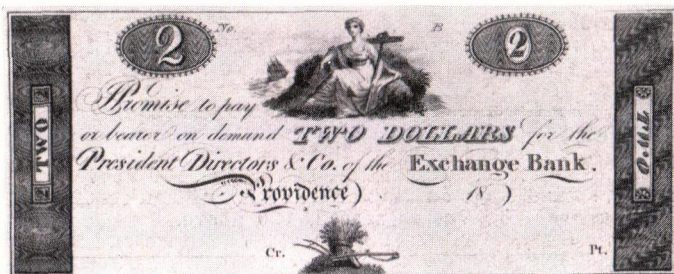 2 No. B 2
Promise to pay
or bearer on demand TWO DOLLARS for the
President Directors & Co. of the Exchange Bank.
Providence) 18 )
Cr. Pt.
2 TWO 2
TWO